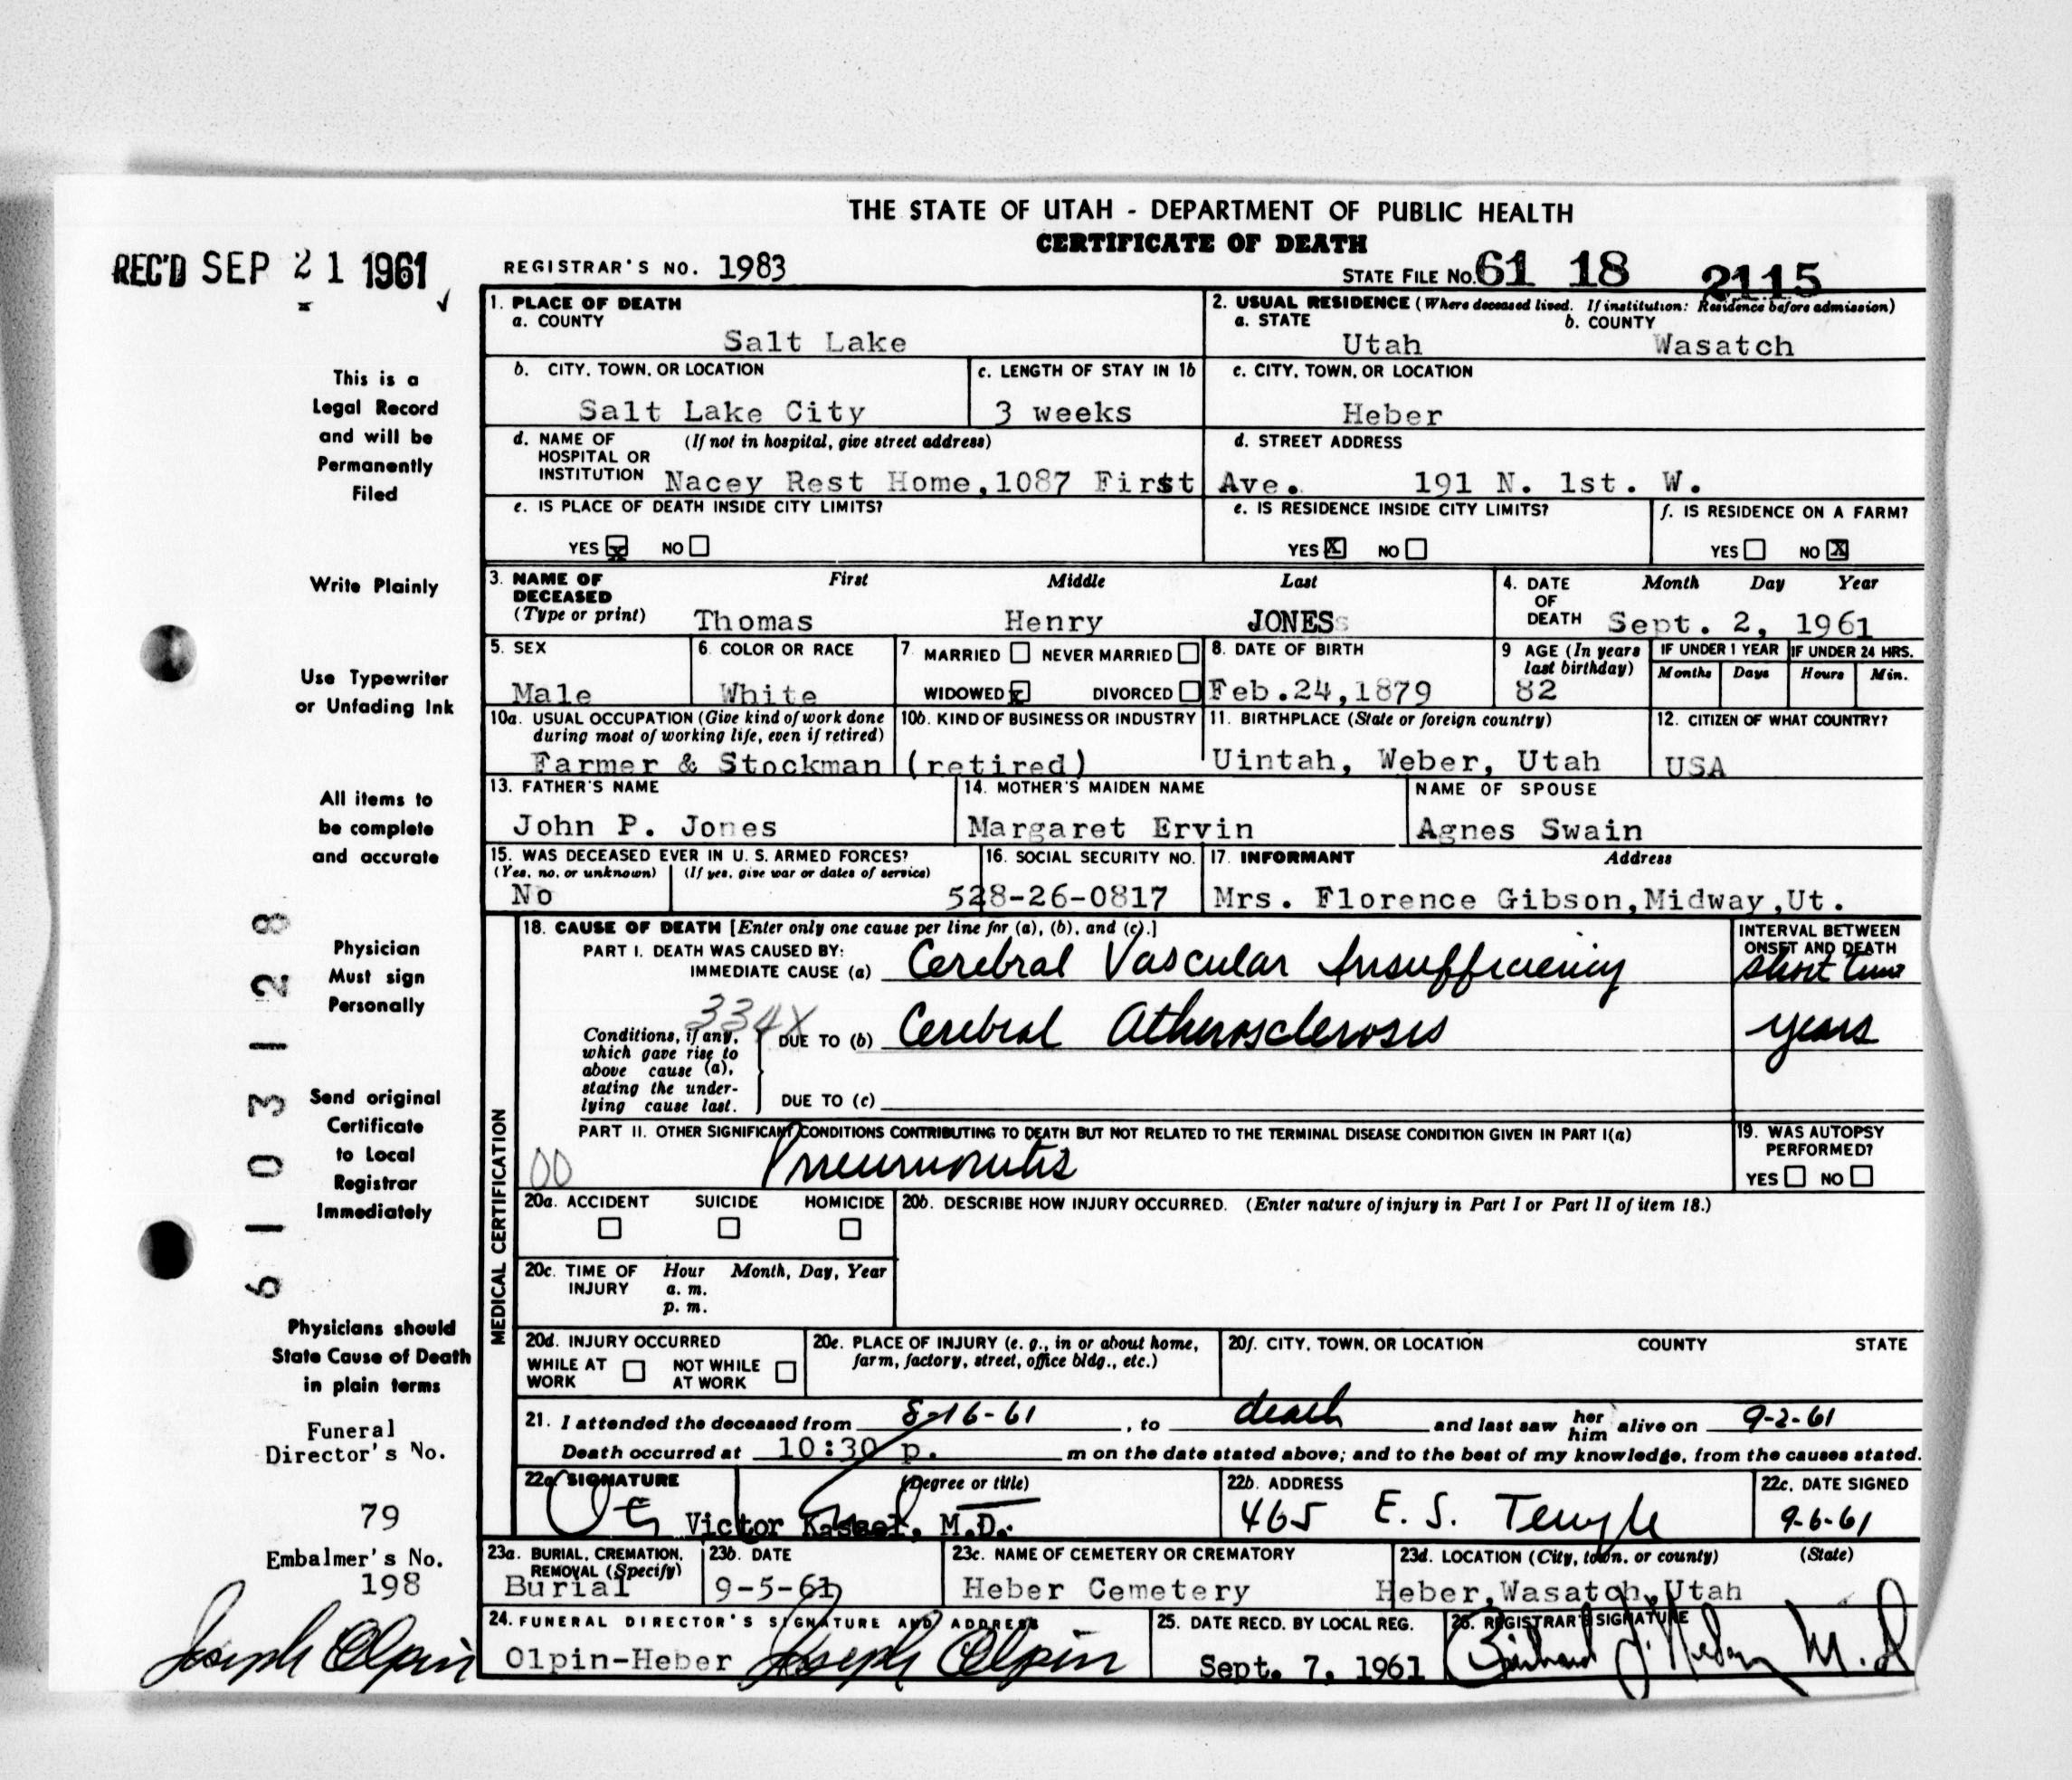 THE STATE OF UTAH - DEPARTMENT OF PUBLIC HEALTH
CERTIFICATE OF DEATH
REC'D SEP 21 1961
REGISTRAR'S NO. 1983
STATE FILE NO. 61 18 2115
This is a
Legal Record
and will be
Permanently
Filed
Write Plainly
Use Typewriter
or Unfading Ink
All items to
be complete
and accurate
Physician
Must sign
Personally
Send original
Certificate
to Local
Registrar
Immediately
Physicians should
State Cause of Death
in plain terms
Funeral
Director's No.
79
Embalmer's No.
198
Joseph Olpin
61 03128
1. PLACE OF DEATH
a. COUNTY
Salt Lake
2. USUAL RESIDENCE (Where deceased lived. If institution: Residence before admission)
a. STATE b. COUNTY
Utah Wasatch
b. CITY, TOWN, OR LOCATION
Salt Lake City
c. LENGTH OF STAY IN 1b
3 weeks
c. CITY, TOWN, OR LOCATION
Heber
d. NAME OF (If not in hospital, give street address)
HOSPITAL OR
INSTITUTION Nacey Rest Home, 1087 First Ave.
d. STREET ADDRESS
191 N. 1st. W.
e. IS PLACE OF DEATH INSIDE CITY LIMITS?
YES x NO
e. IS RESIDENCE INSIDE CITY LIMITS?
YES X NO
f. IS RESIDENCE ON A FARM?
YES NO X
3. NAME OF DECEASED First Middle Last
(Type or print) Thomas Henry JONES
4. DATE OF DEATH Month Day Year
Sept. 2, 1961
5. SEX
Male
6. COLOR OR RACE
White
7. MARRIED NEVER MARRIED
WIDOWED x DIVORCED
8. DATE OF BIRTH
Feb.24,1879
9 AGE (In years last birthday)
82
IF UNDER 1 YEAR IF UNDER 24 HRS.
Months Days Hours Min.
10a. USUAL OCCUPATION (Give kind of work done
during most of working life, even if retired)
Farmer & Stockman
10b. KIND OF BUSINESS OR INDUSTRY
(retired)
11. BIRTHPLACE (State or foreign country)
Uintah, Weber, Utah
12. CITIZEN OF WHAT COUNTRY?
USA
13. FATHER'S NAME
John P. Jones
14. MOTHER'S MAIDEN NAME
Margaret Ervin
NAME OF SPOUSE
Agnes Swain
15. WAS DECEASED EVER IN U. S. ARMED FORCES?
(Yes, no, or unknown) (If yes, give war or dates of service)
No
16. SOCIAL SECURITY NO.
528-26-0817
17. INFORMANT Address
Mrs. Florence Gibson,Midway,Ut.
MEDICAL CERTIFICATION
18. CAUSE OF DEATH [Enter only one cause per line for (a), (b), and (c).]
PART I. DEATH WAS CAUSED BY:
IMMEDIATE CAUSE (a) Cerebral Vascular Insufficiency
INTERVAL BETWEEN
ONSET AND DEATH
short time
334X
Conditions, if any,
which gave rise to
above cause (a),
stating the under-
lying cause last.
DUE TO (b) Cerebral Atherosclerosis
years
DUE TO (c)
PART II. OTHER SIGNIFICANT CONDITIONS CONTRIBUTING TO DEATH BUT NOT RELATED TO THE TERMINAL DISEASE CONDITION GIVEN IN PART I(a)
00 Pneumonitis
19. WAS AUTOPSY
PERFORMED?
YES NO
20a. ACCIDENT SUICIDE HOMICIDE
20b. DESCRIBE HOW INJURY OCCURRED. (Enter nature of injury in Part I or Part II of item 18.)
20c. TIME OF INJURY Hour Month, Day, Year
a. m.
p. m.
20d. INJURY OCCURRED
WHILE AT WORK NOT WHILE AT WORK
20e. PLACE OF INJURY (e. g., in or about home,
farm, factory, street, office bldg., etc.)
20f. CITY, TOWN, OR LOCATION COUNTY STATE
21. I attended the deceased from 8-16-61, to death and last saw her him alive on 9-2-61
Death occurred at 10:30 p. m on the date stated above; and to the best of my knowledge, from the causes stated.
22a. SIGNATURE (Degree or title)
Victor Kassel, M.D.
22b. ADDRESS
465 E. S. Temple
22c. DATE SIGNED
9-6-61
23a. BURIAL, CREMATION,
REMOVAL (Specify)
Burial
23b. DATE
9-5-61
23c. NAME OF CEMETERY OR CREMATORY
Heber Cemetery
23d. LOCATION (City, town, or county) (State)
Heber,Wasatch,Utah
24. FUNERAL DIRECTOR'S SIGNATURE AND ADDRESS
Olpin-Heber Joseph Olpin
25. DATE RECD. BY LOCAL REG.
Sept. 7, 1961
26. REGISTRAR'S SIGNATURE
M.D